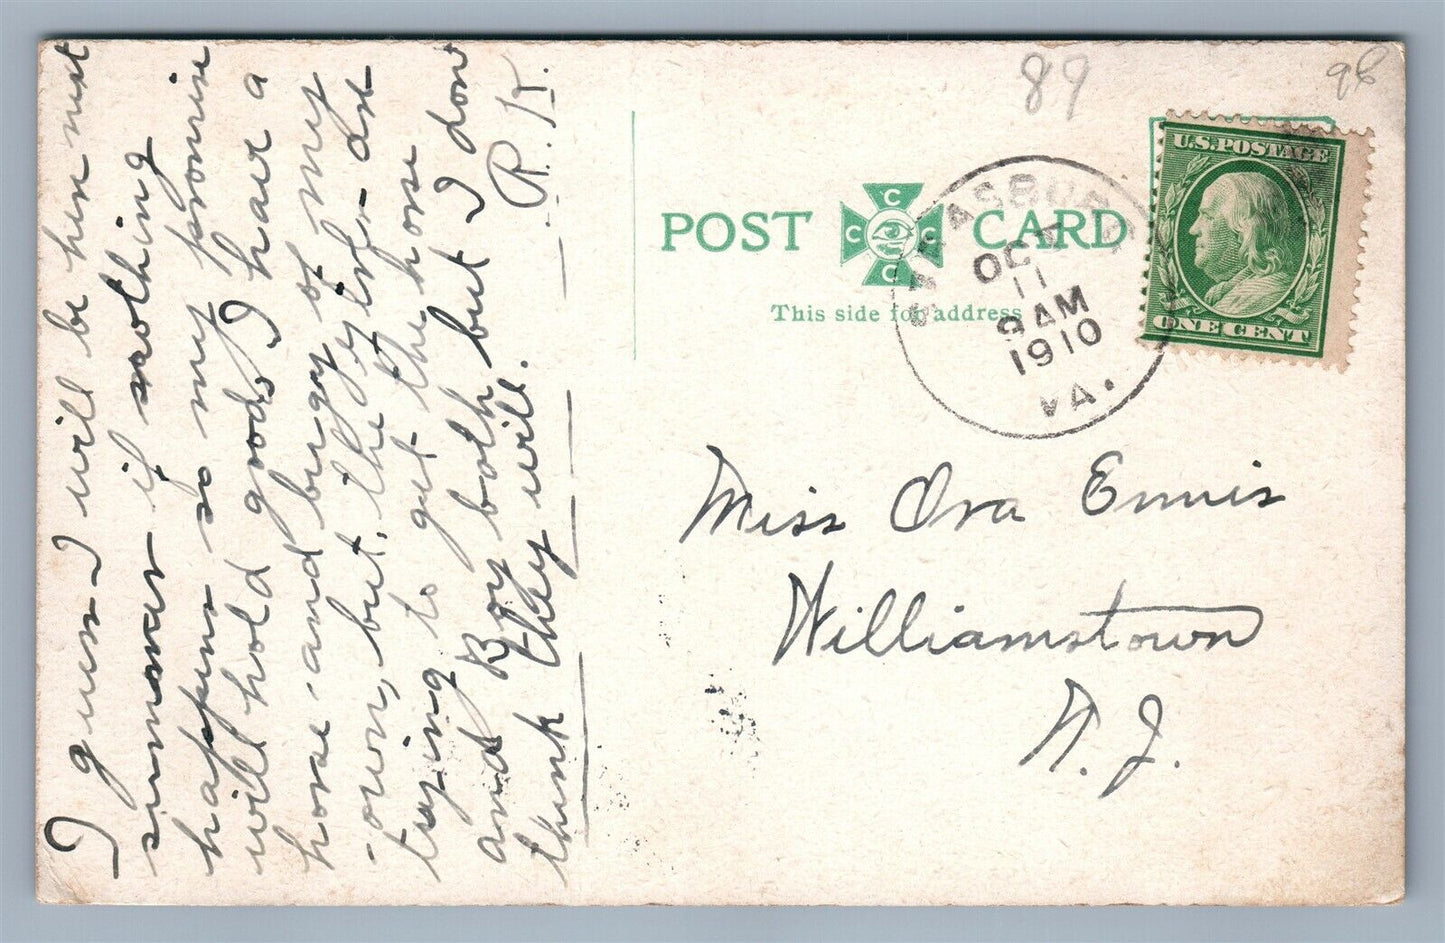 I guess I will be her next
summar if nothing
happens so my promise
will hold good, I hear a
horse and bugy of my
own, but, the
trying to get the horse
and Boy both but I don
think thay will.
R. K.
89
98
POST CARD
C C C C
This side for address
STRASBURG
OCT
11
9 AM
1910
VA.
U.S. POSTAGE
ONE CENT
Miss Ora Ennis
Williamstown
N. J.